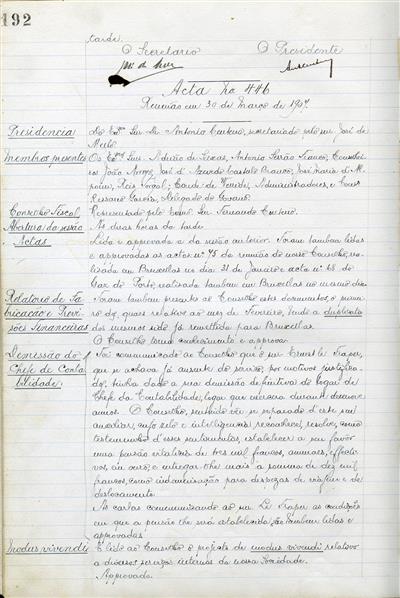 192
tarde.
O Secretario O Presidente
José de
Acta No 446
Reunião em 30 de Março de 1907
Presidencia do Exmo Snr. Antonio Centeno, secretariado pelo snr. José de
Mello.
Membros presentes Os Exmos Snrs.
João José d'Azevedo Castello Branco, José Maria d'
Reis Torgal, Conde de Mendes, Administradores, e
Garcia, Delegado do Governo.
Conselho Fiscal Representado pelo Exmo. Snr. Fernando
Abertura da sessão Ás duas horas da tarde
Actas Lida e approvada a da sessão anterior. Foram tambem lidas
e approvadas as actas nº 45 da reunião do nosso Conselho, rea-
lisada em Bruxellas no dia 31 de Janeiro e acta nº 68 do
Gaz do Porto, realisada tambem em Bruxellas no mesmo dia
Relatorio de Fa- Foram tambem presentes ao Conselho estes documentos, o primei-
bricação e Previ- ro dos quaes relativo ao mez de Fevereiro, tendo o duplicato
sões Financeiras dos mesmos sido já remettido para Bruxellas.
O Conselho tomou conhecimento e approvou.
Demissão do Foi communicado ao Conselho que o snr. Ernest Le
Chefe de Conta- que se achava já ausente do serviço, por motivos justifica-
bilidade. dos, tinha dado a sua demissão definitiva do logar de
Chefe da Contabilidade, logar que exerceu durante
annos. O Conselho, sentindo vêr-se separado d'este seu
auxiliar, cujo zelo e intelligencia reconhece, resolve, como
testemunho d'esses sentimentos, estabelecer a seu favor
uma pensão vitalicia de tres mil francos, annuaes, effecti-
vos, em ouro, e entregar-lhe mais a somma de dez mil
francos, como indemnisação para despezas de viagem e de
deslocamento.
As cartas communicando ao snr. Le as condições
em que a pensão lhe será estabelecida, são tambem lidas e
approvadas.
Modus vivendi É lido ao Conselho o projecto de modus vivendi relativo
a diversos serviços internos da nossa Sociedade.
Approvado.